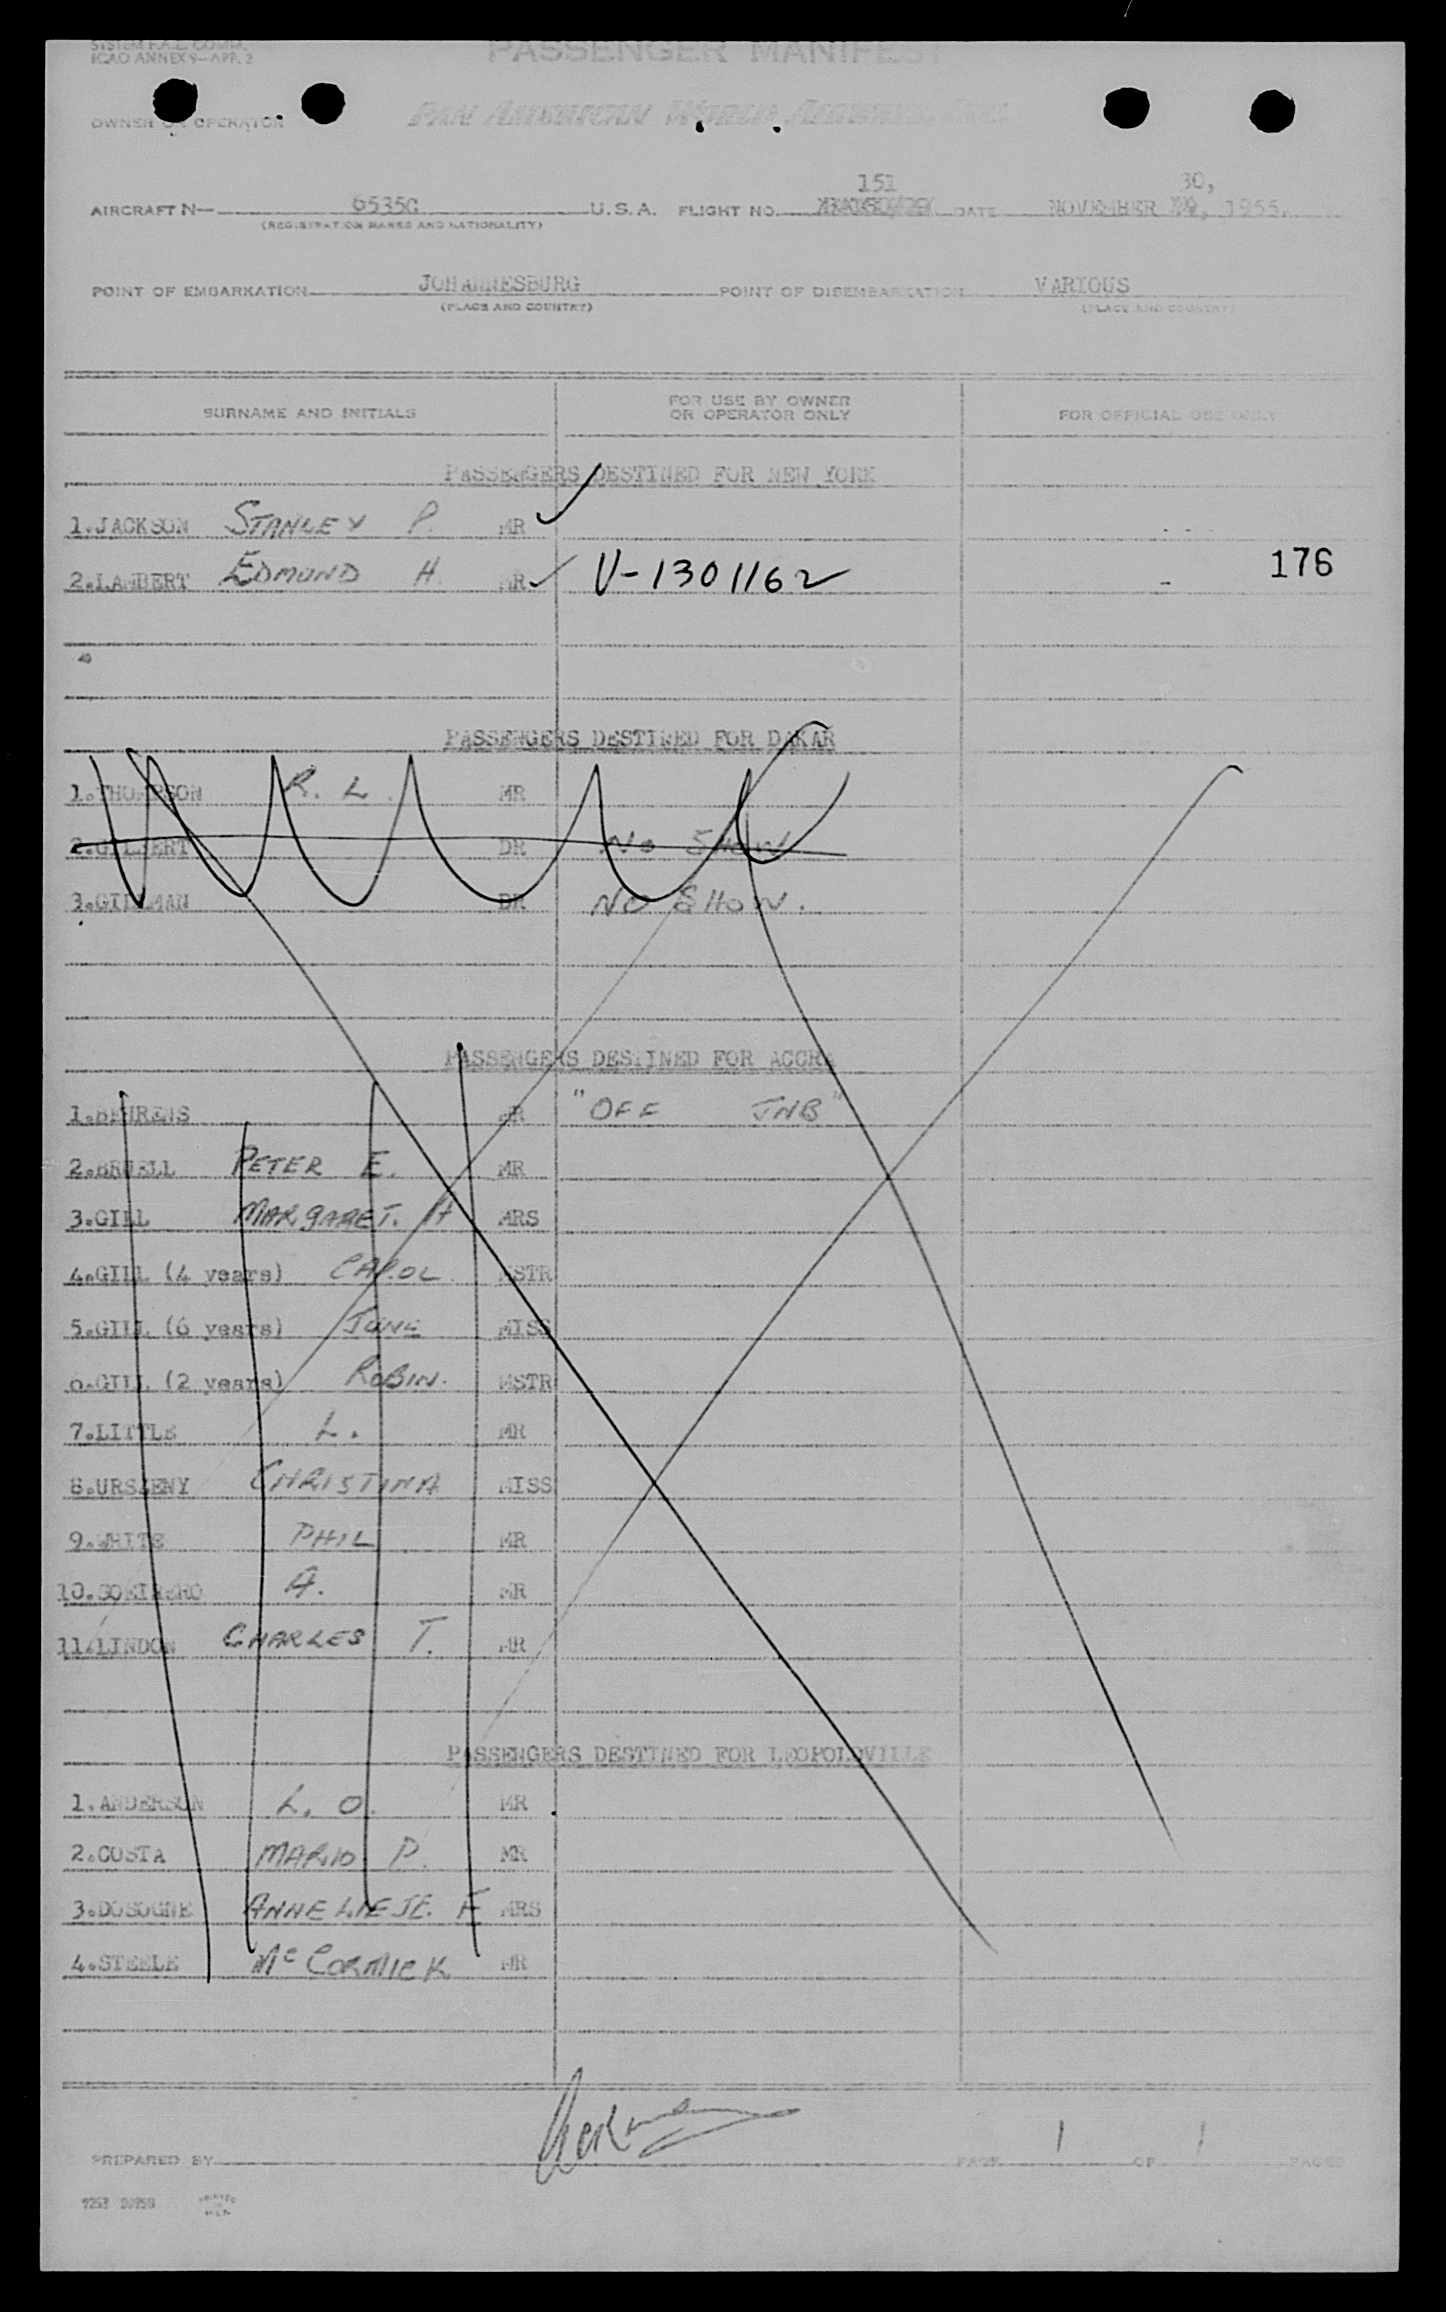 SYSTEM F.A.L. COMM.
ICAO ANNEX 9—APP. 2
PASSENGER MANIFEST
OWNER OR OPERATOR
PAN AMERICAN WORLD AIRWAYS, INC.
151
30,
AIRCRAFT N— 6535C U.S.A. FLIGHT NO. DATE NOVEMBER 1955.
(REGISTRATION MARKS AND NATIONALITY)
POINT OF EMBARKATION JOHANNESBURG POINT OF DISEMBARKATION VARIOUS
(PLACE AND COUNTRY) (PLACE AND COUNTRY)
SURNAME AND INITIALS FOR USE BY OWNER OR OPERATOR ONLY FOR OFFICIAL USE ONLY
PASSENGERS DESTINED FOR NEW YORK
1.JACKSON STANLEY P. MR
2.LAMBERT EDMUND H. MR V-1301162 176
PASSENGERS DESTINED FOR DAKAR
1.THOMPSON R. L. MR
2.GILBERT DR NO SHOW
3.GILLMAN DR NO SHOW.
PASSENGERS DESTINED FOR ACCRA
1.BEHRENS MR "OFF JNB"
2.BRUELL PETER E. MR
3.GILL MARGARET. H MRS
4.GILL (4 years) CAROL MSTR
5.GILL (6 years) JUNE MISS
6.GILL (2 years) ROBIN. MSTR
7.LITTLE L. MR
8.URSZENY CHRISTINA MISS
9.WHITE PHIL MR
10. A. MR
11.LINDON CHARLES T. MR
PASSENGERS DESTINED FOR LEOPOLDVILLE
1.ANDERSON L. O. MR
2.COSTA MARIO P. MR
3.DOSOGNE ANNELIESE. F MRS
4.STEELE McCORMICK MR
PREPARED BY PAGE 1 OF 1 PAGES
PRINTED IN U.S.A.